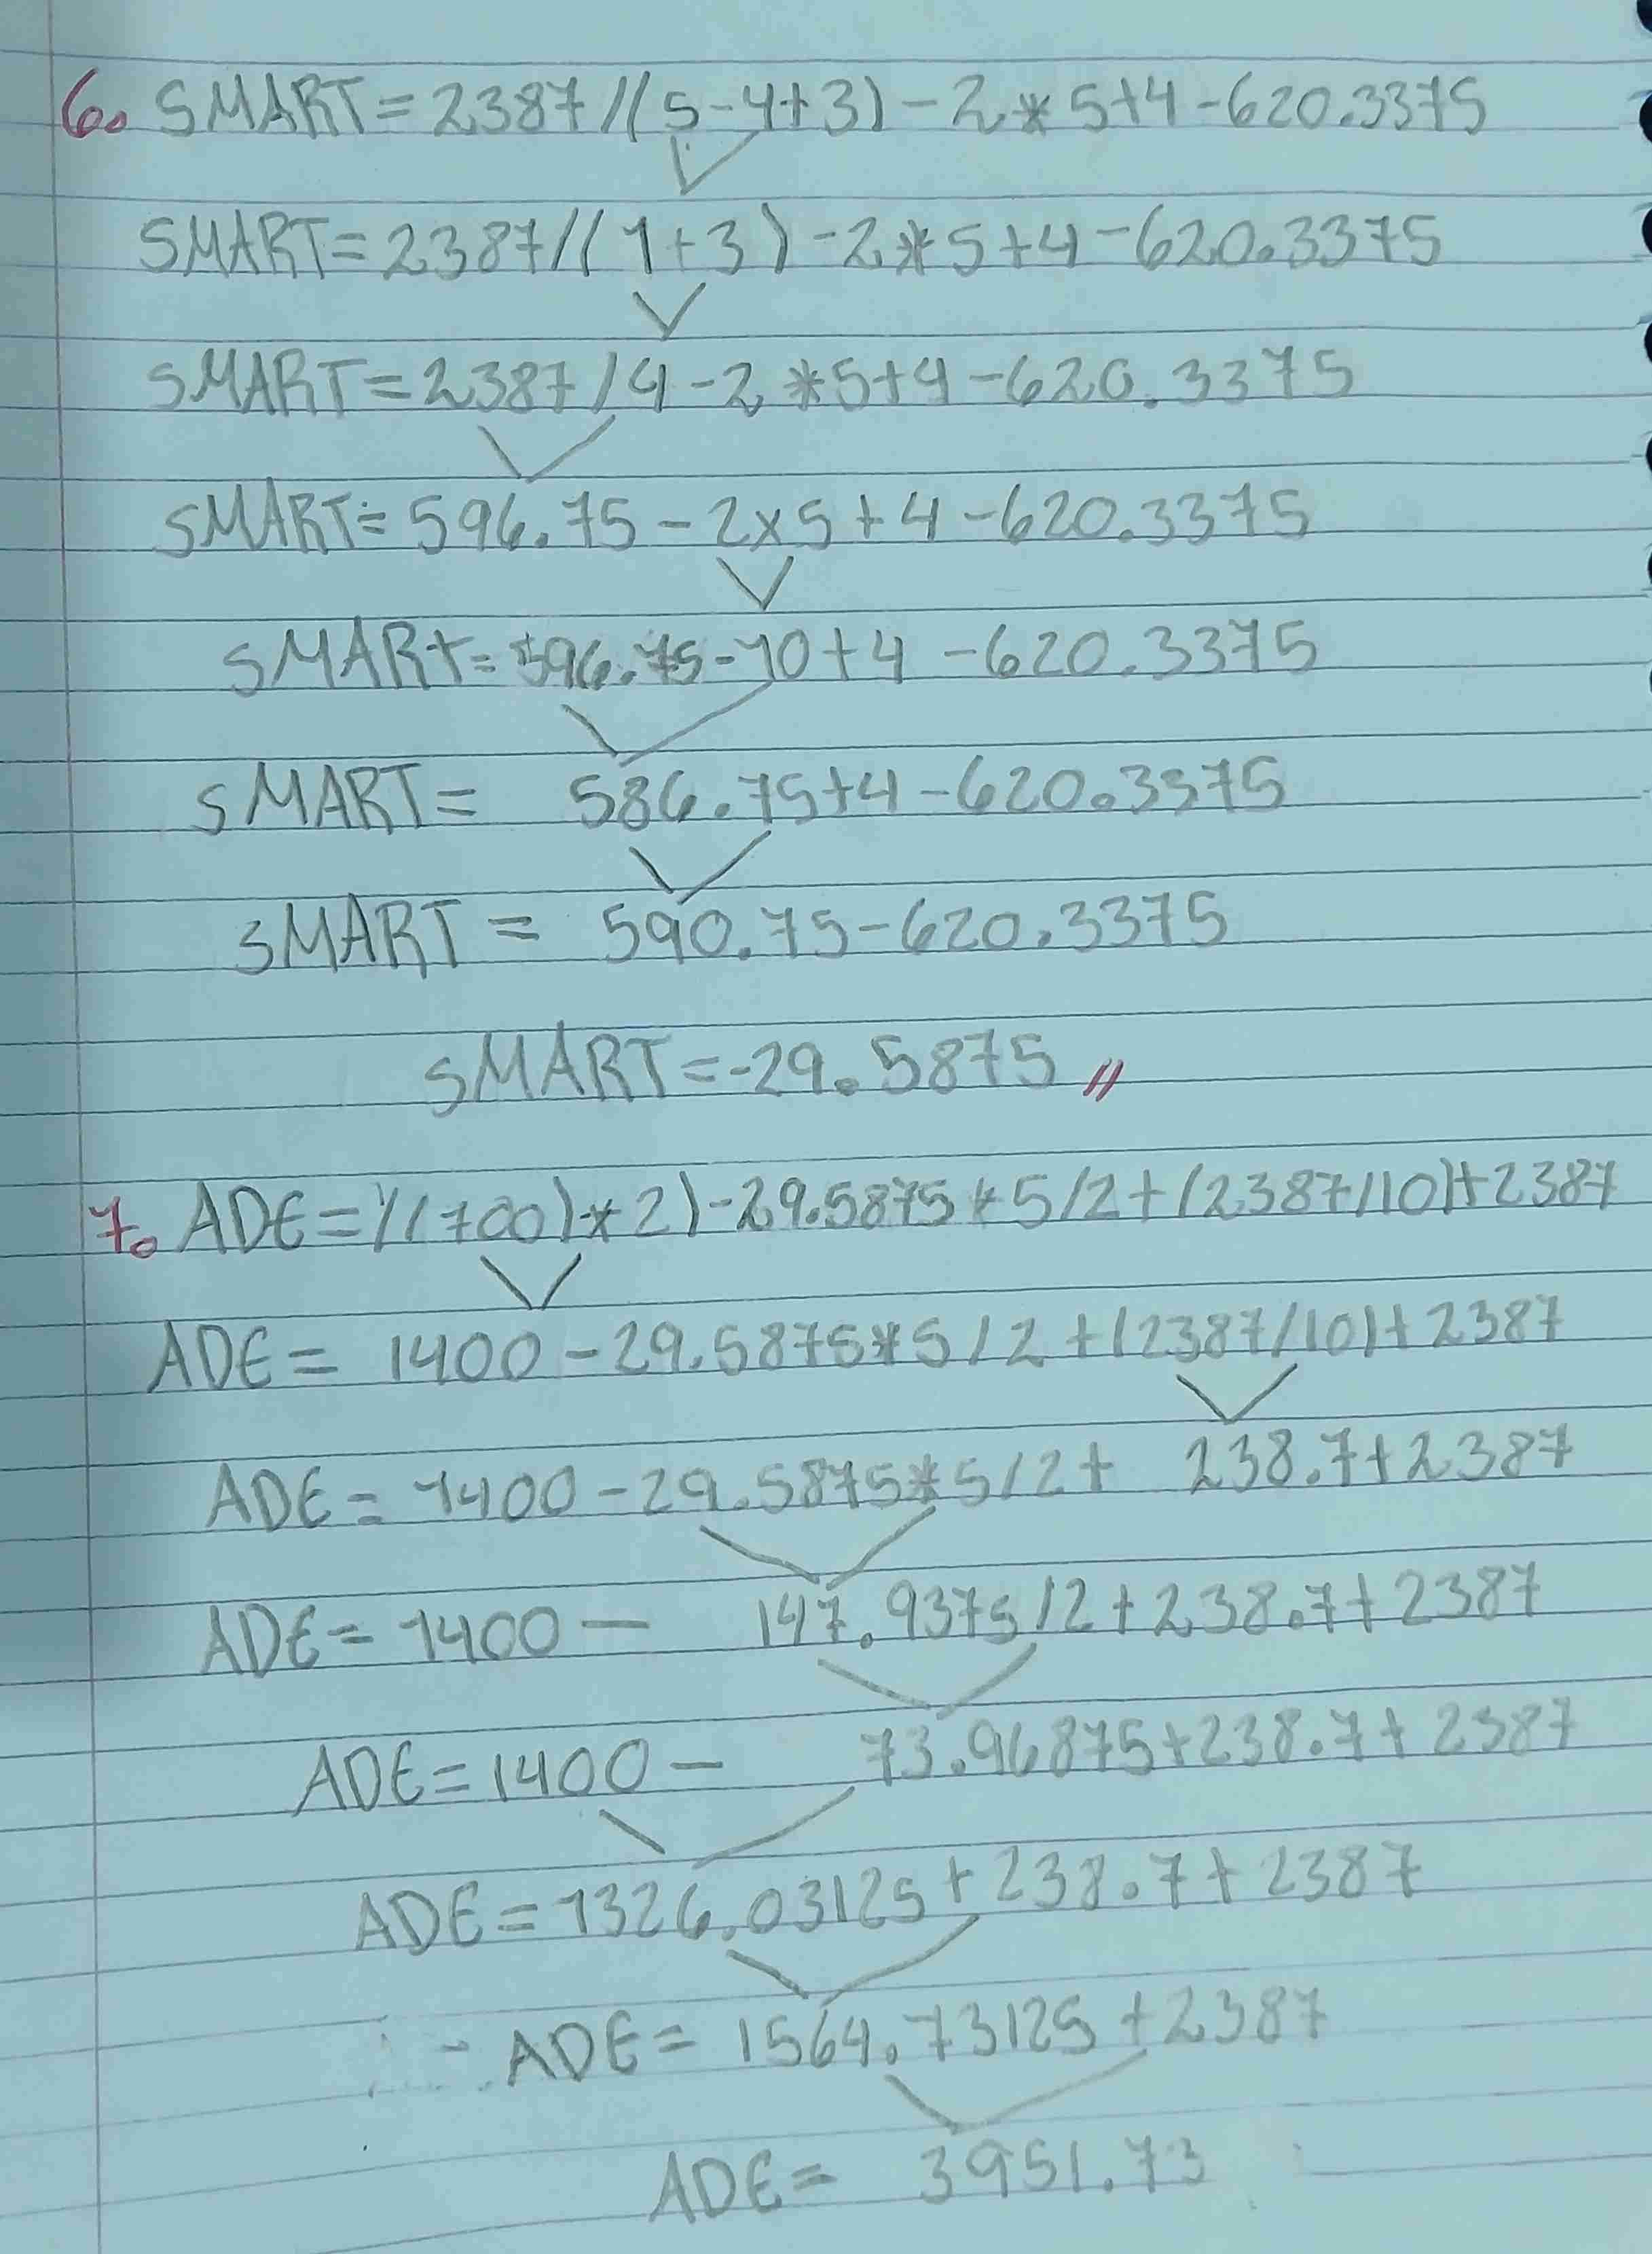 6. SMART=2387/(5-4+3)-2*5+4-620.3375
SMART=2387/(1+3)-2*5+4-620.3375
SMART=2387/4-2*5+4-620.3375
SMART=596.75-2x5+4-620.3375
SMART=596.75-10+4-620.3375
SMART= 586.75+4-620.3375
SMART = 590.75-620.3375
SMART=-29.5875 //
7. ADE=((700)*2)-29.5875*5/2+(2387/10)+2387
ADE= 1400-29.5875*5/2+(2387/10)+2387
ADE= 1400-29.5875*5/2+ 238.7+2387
ADE=1400- 147.9375/2+238.7+2387
ADE=1400- 73.96875+238.7+2387
ADE=1326.03125+238.7+2387
ADE= 1564.73125+2387
ADE= 3951.73